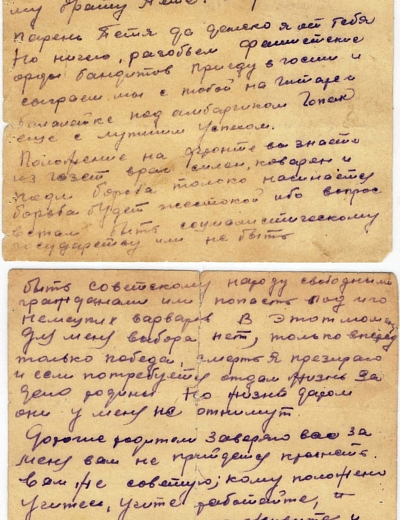 му брату Пете.
парень Петя да далеко я от тебя
Но ничего, разобьем фашистские
орды бандитов приеду в гости и
сыграем мы с тобой на гитаре и
балалайке под амбарчиком Гопак
еще с лутшим успехом.
Положение на фронте вы знаете
из газет враг силен, коварен и
борьба только начинается
борьба будет жестокой ибо вопрос
встал быть социалистическому
государству или не быть
быть советскому народу свободными
гражданами или попасть под иго
немецких варваров В этот момент
для меня выбора нет, только вперед
только победа, смерть я презираю
и если потребуется отдам жизнь за
дело родины Но жизнь даром
они у меня не отнимут
Дорогие родители заверяю вас за
меня вам не прийдется краснеть.
Вам же советую; кому положено
учитесь, учите работайте,